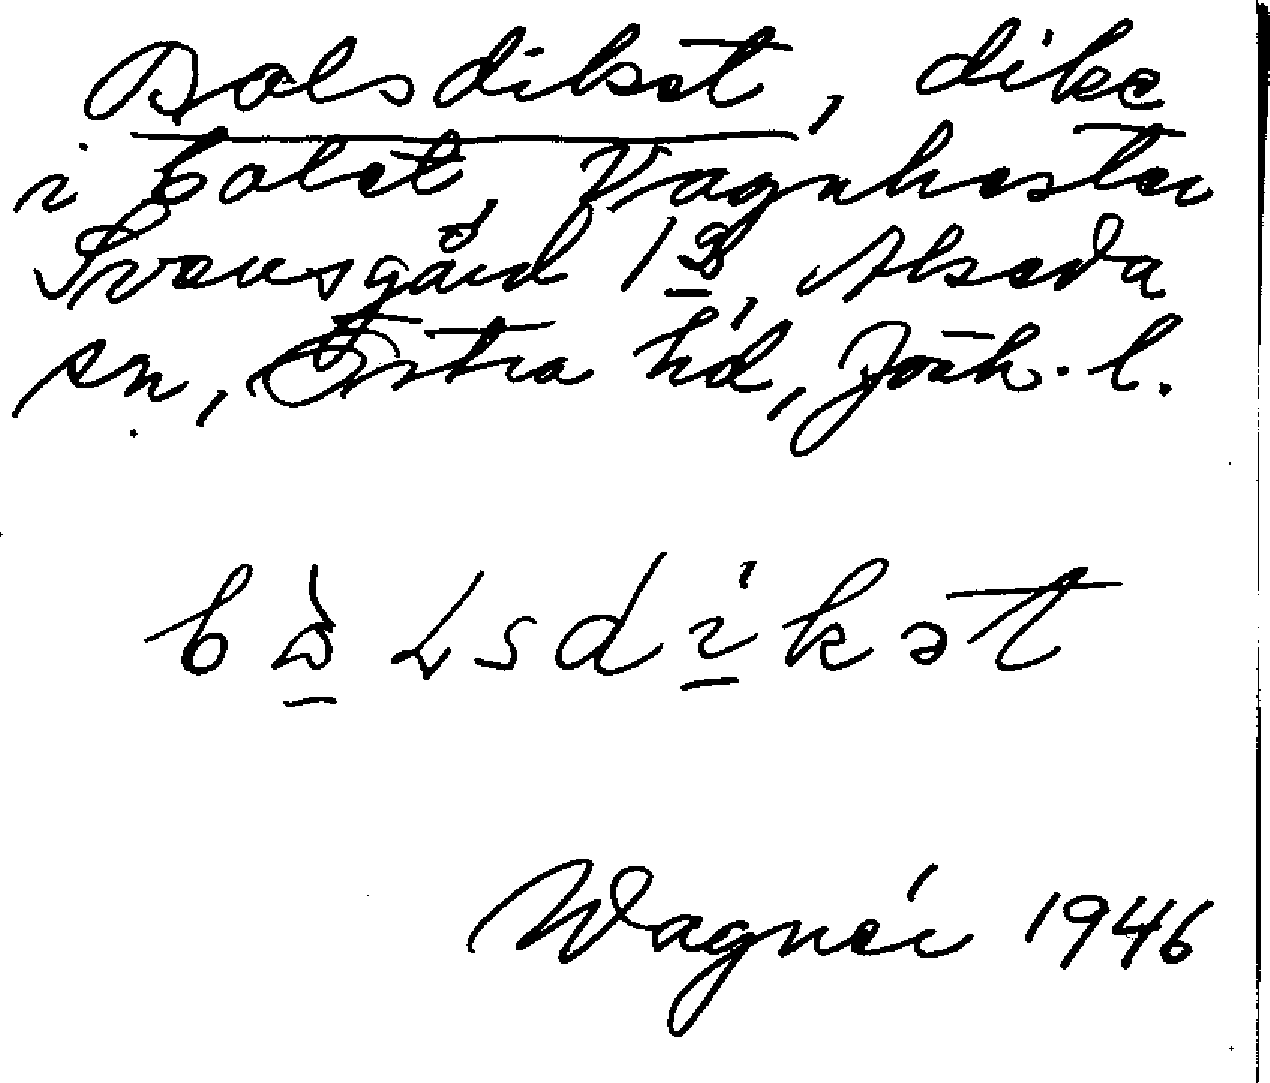 Bolsdiket, dike
i bolet, Vagnhester
Svensgård 1 9/8, Alseda
sn, Östra hd, Jönk. l.
bò̱lsdi̱kət
Wagnér 1946